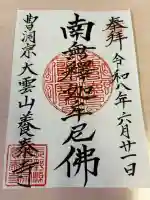 奉拝 令和八年六月廿一日
南無釋迦牟尼佛
曹洞宗大雲山養泰寺